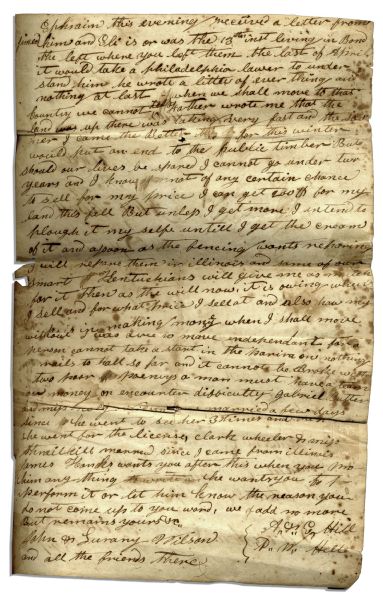 Ephraim this evening received a letter from
him and Eli is or was the 13th inst living in Bond
the left where you left them the last of April
it would take a philadelphia lawer to under
stand him he wrote a little of ever thing and
nothing at last when we shall move to that
Country we cannot tell Father wrote me that the
land was up there was taking very fast and the
ner I came the better for this winter
would put an end to the public timber But
should our lives be spared I cannot go under two
years and I know not of any certain chance
to sell for my price I can get for my
land this fall But unless I get more I intend to
plough it my selfe untill I get the cream
of it and as soon as the fencing wants
I will repare them in illinois and some of our
smart Kentuckians will give me as much
for it then as the will now it is owing where
I sell and for what price I sell at and also how my
in making money when I shall move
without I was able to move independant for a
person cannot take a start in the on nothing
nails to hall so far and it cannot be Broke with
two a man must have a
or money or encounter difficulty gabriel
and married a few days
since he went to see her 3 times and
he went for the license clark wheeler
married since I came from illinois
James Hanks wants you after this when you
him any thing to the want you to
perform it or let him know the reason you
do not come up to you word, we add no more
But remains yours
John & Surany Wilson
and all the friends there
Hill
Hill